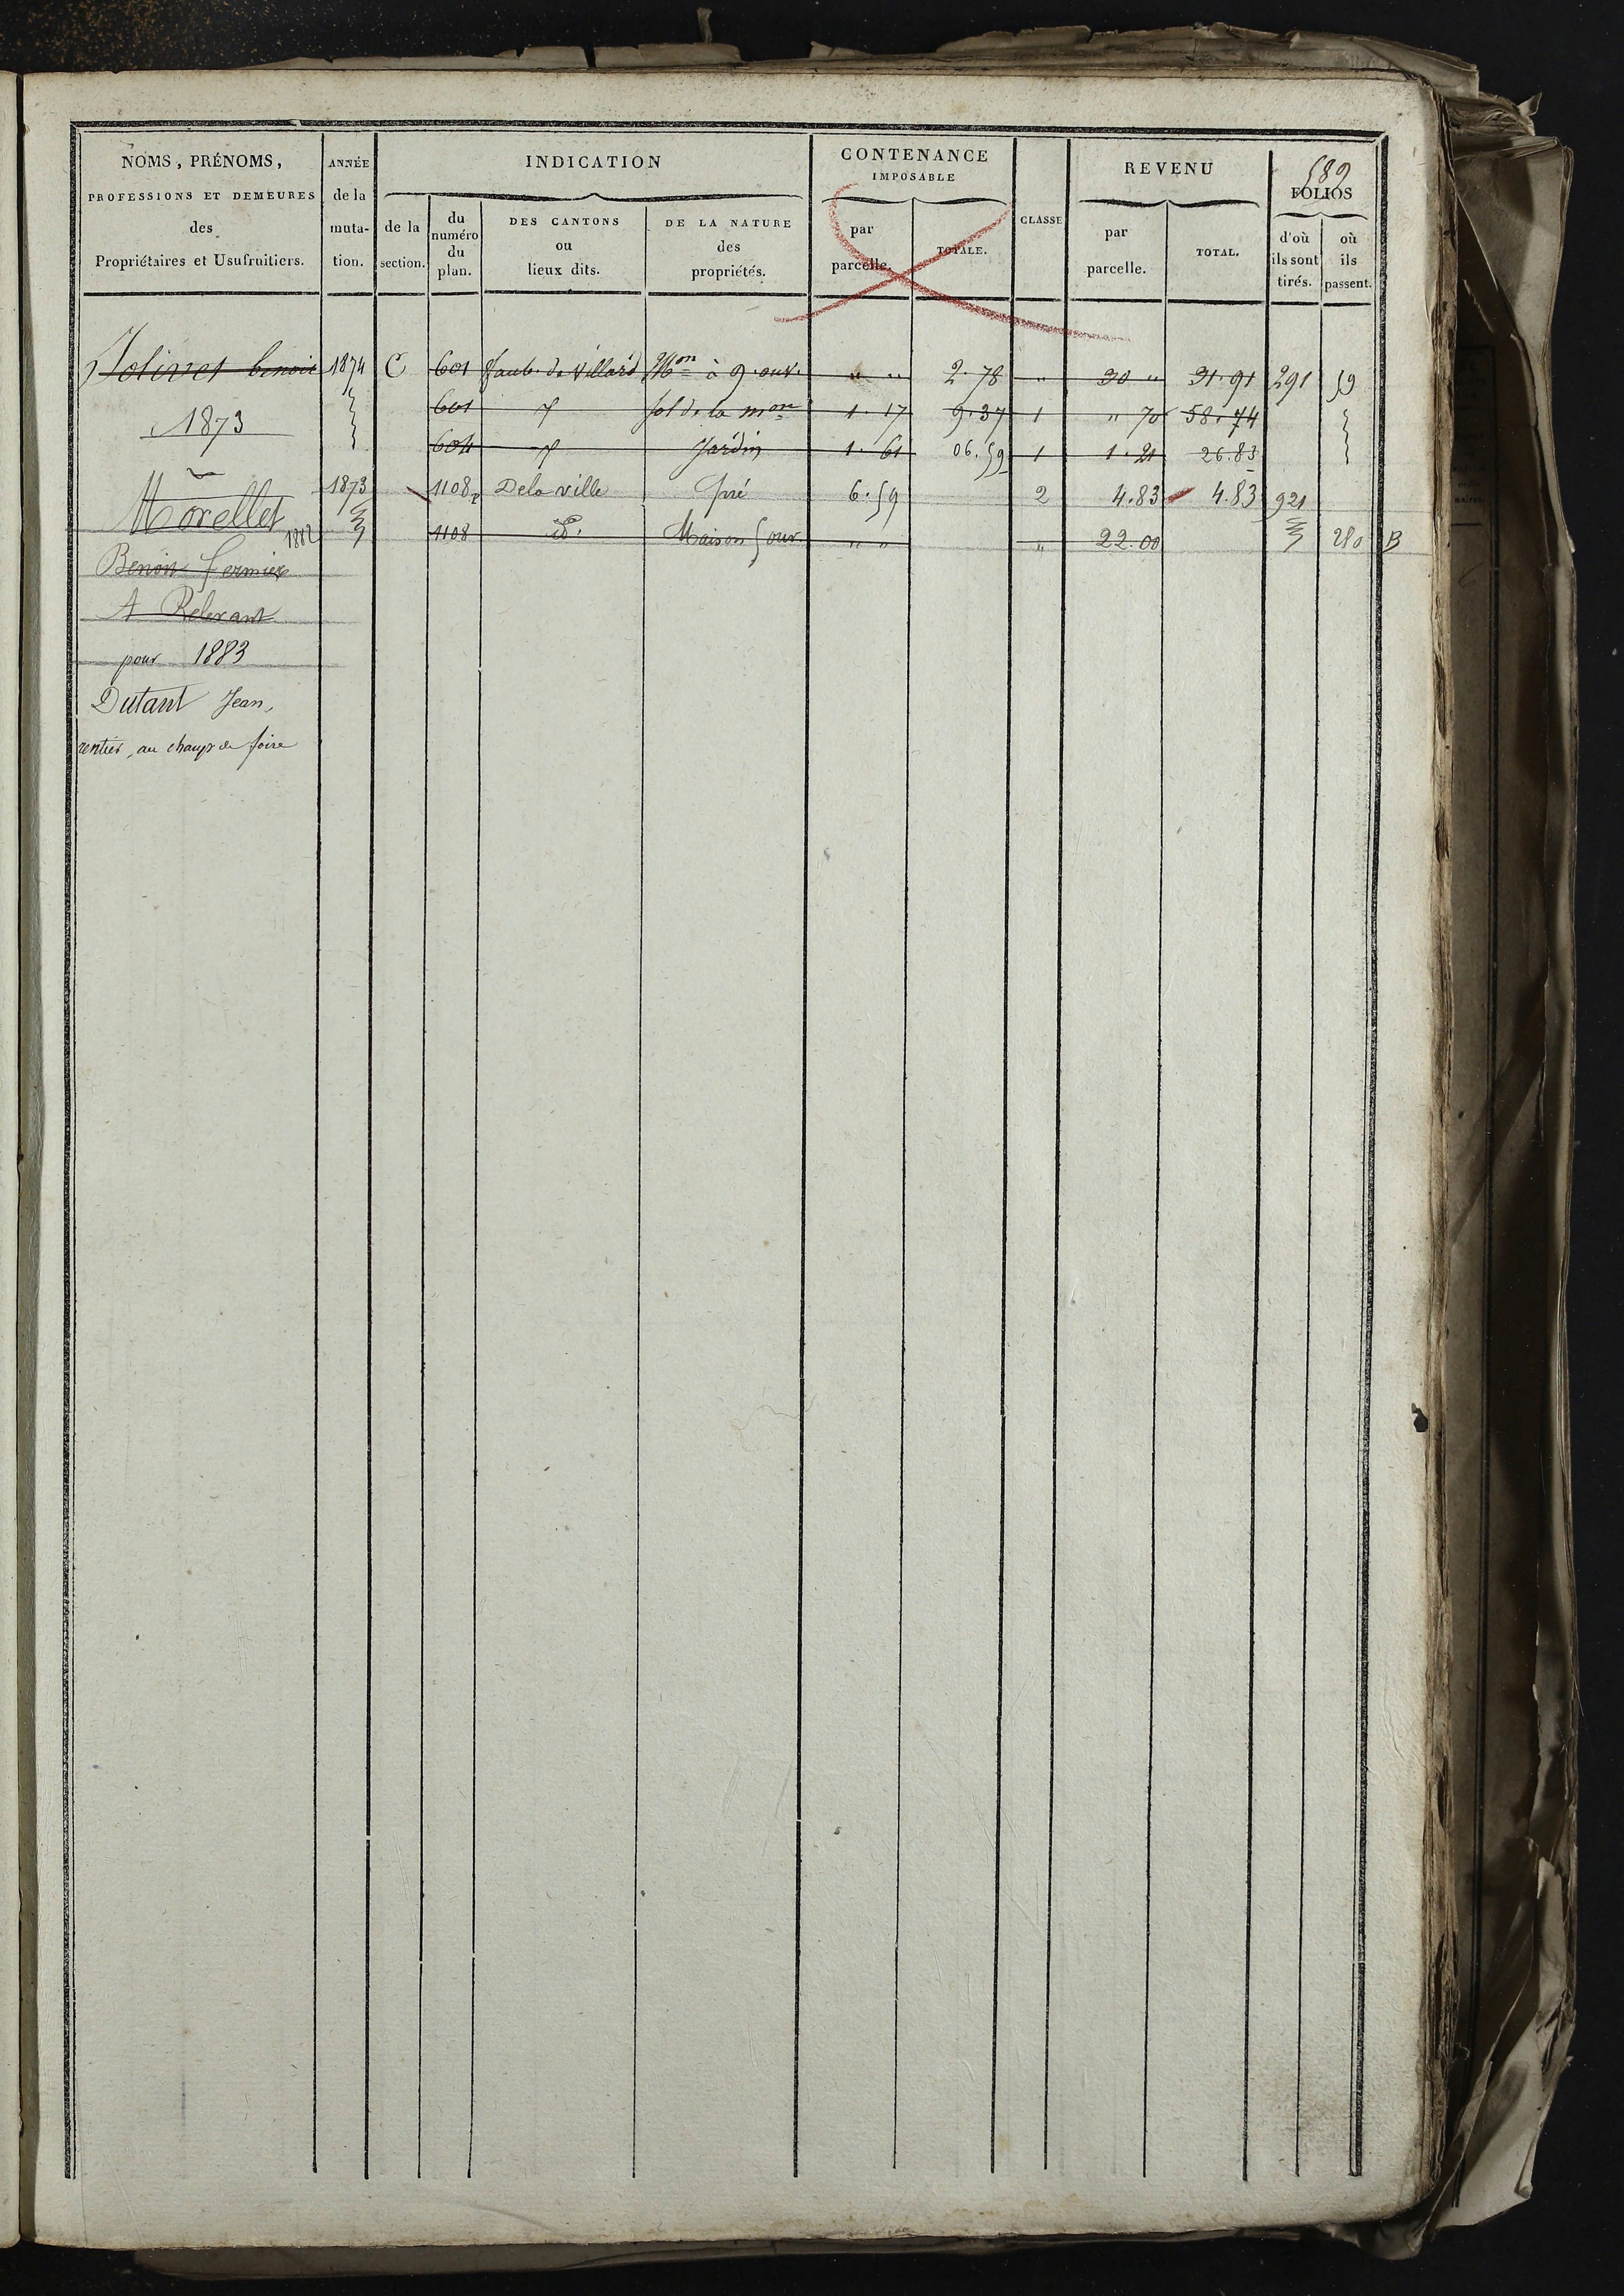 589
NOMS, PRÉNOMS,
PROFESSIONS ET DEMEURES
des
Propriétaires et Usufruitiers.
ANNÉE
de la
muta-
tion.
INDICATION
de la
section.
du
numéro
du
plan.
DES CANTONS
ou
lieux dits.
DE LA NATURE
des
propriétés.
CONTENANCE
IMPOSABLE
par
parcelle.
TOTALE.
CLASSE
REVENU
par
parcelle.
TOTAL.
FOLIOS
d'où
ils sont
tirés.
où
ils
passent.
Jolivet benoit 1874 C 601 faub. de Villard Mon à 9 ouv. " " 2.78 " 30 " 31.91 291 59
1873 601 sol de la mon 1.17 9.37 1 " 70 58.74
604 Jardin 1.61 06.59 1 1.21 26.83
Morellet 1873 1108p Dela ville pré 6.59 2 4.83 4.83 921
1882 1108 d°. Maison 5 ouv. " " " 22.00 280 B
Benoit fermier
A Relevant
pour 1883
Dutant Jean,
rentier, au champ de foire